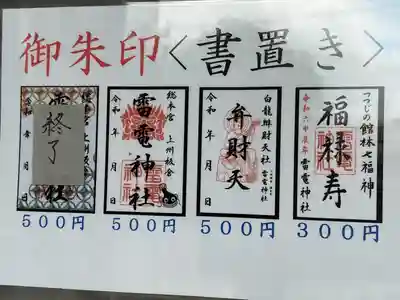 御朱印<書置き>
終了
令和 年 月 日
総本宮 上州板倉
雷電神社
令和 年 月 日
白龍辨財天社
雷電神社
弁財天
令和 年 月 日
つつじの館林七福神
福禄寿
令和六甲辰年 雷電神社
500円
500円
500円
300円